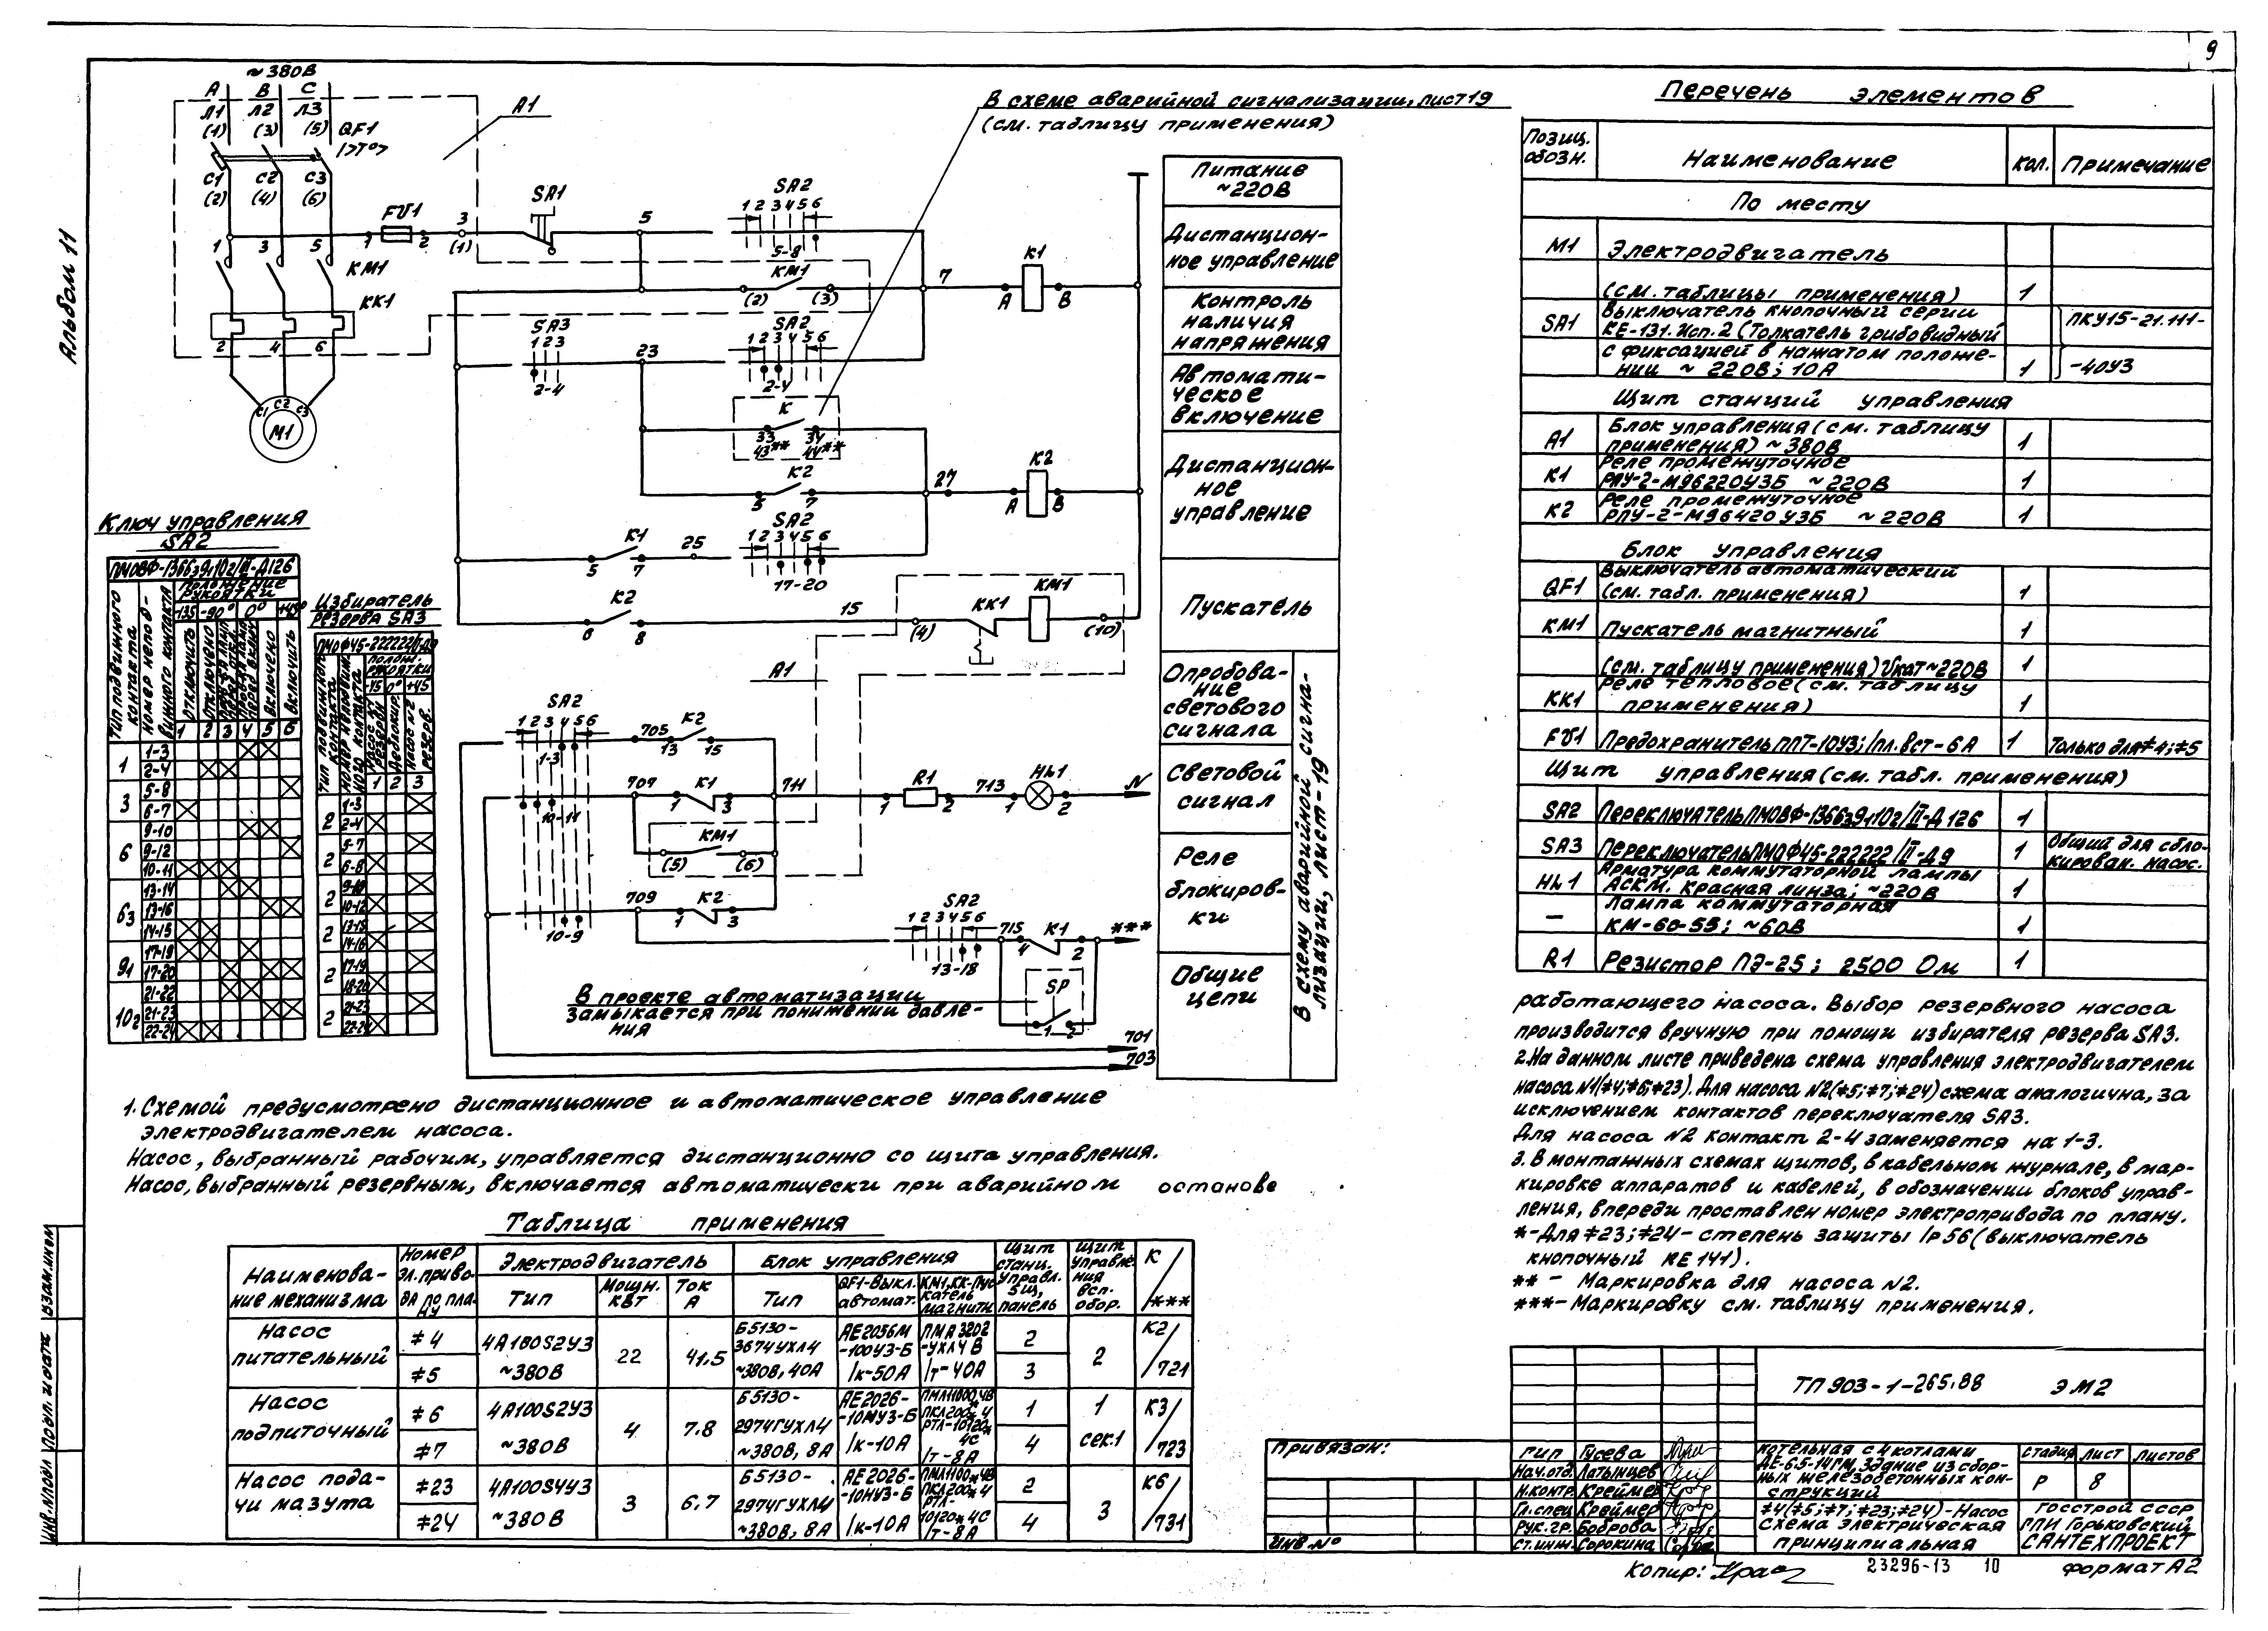 9
Альбом 11
~380В
А В С
Л1 Л2 Л3
(1) (3) (5) QF1
I>T°>
С1 С2 С3
(2) (4) (6)
FU1
1 2
3
(1)
А1
1 3 5
КМ1
КК1
2 4 6
С1 С2 С3
М1
В схеме аварийной сигнализации, лист 19
(см. таблицу применения)
SA1
5
SA2
1 2 3 4 5 6
5-8
КМ1
(2) (3)
7
К1
А В
SA3
1 2 3
2-4
23
SA2
1 2 3 4 5 6
2-4
К
33 34
43** 44**
К2
5 7
27
К2
А В
К1
5 7
25
SA2
1 2 3 4 5 6
17-20
К2
6 8
15
(4)
КК1
КМ1
(10)
А1
SA2
1 2 3 4 5 6
1-3
705
К2
13 15
707
К1
1 3
711
R1
1 2
713
HL1
1 2
N
10-11
КМ1
(5) (6)
709
К2
1 3
10-9
SA2
1 2 3 4 5 6
13-18
715
К1
4 2
***
SP
1 2
В проекте автоматизации
замыкается при понижении давле-
ния
701
703
Питание
~220В
Дистанцион-
ное управление
Контроль
наличия
напряжения
Автомати-
ческое
включение
Дистанцион-
ное
управление
Пускатель
Опробова-
ние
светового
сигнала
Световой
сигнал
Реле
блокиров-
ки
Общие
цепи
В схему аварийной сигна-
лизации, лист-19
Ключ управления
SA2
Тип подвижного
контакта
Положение
рукоятки
-135 -90° 0° +45°
Отключить
Отключено
Включено
Включить
1 2 3 4 5 6
1 1-3
2-4
3 5-8
6-7
6 9-10
9-12
10-11
63 13-14
13-16
14-15
91 17-19
17-20
21-22
102 21-23
22-24
Избиратель
резерва SA3
ПМОФ45-222222/II-Д9
-45 0° +45
1 2 3
2 1-3
2-4
2 5-7
6-8
2 9-10
10-12
2 13-15
14-16
2 17-19
18-20
2 21-23
22-24
Перечень элементов
Позиц. обозн. Наименование Кол. Примечание
По месту
М1 Электродвигатель
(см. таблицы применения) 1
SA1 Выключатель кнопочный серии
КЕ-131. Исп. 2 (Толкатель грибовидный ПКУ15-21.111-
с фиксацией в нажатом положе-
нии ~220В; 10А 1 -40У3
Щит станций управления
А1 Блок управления (см. таблицу
применения) ~380В 1
К1 Реле промежуточное
РПУ-2-М96220У3Б ~220В 1
К2 Реле промежуточное
РПУ-2-М96420У3Б ~220В 1
Блок управления
QF1 Выключатель автоматический
(см. табл. применения) 1
КМ1 Пускатель магнитный 1
(см. таблицу применения) Uкат ~220В 1
КК1 Реле тепловое (см. таблицу
применения) 1
FU1 Предохранитель ППТ-10У3; Iпл.вст-6А 1 Только для ≠4; ≠5
Щит управления (см. табл. применения)
SA2 Переключатель ПМОВФ-1366391102/II-Д126 1
SA3 Переключатель ПМОФ45-222222/II-Д9 1 Общий для сбло-
кирован. насос.
HL1 Арматура коммутаторной лампы
АСКМ. Красная линза; ~220В 1
— Лампа коммутаторная
КМ-60-55; ~60В 1
R1 Резистор ПЭ-25; 2500 Ом 1
1. Схемой предусмотрено дистанционное и автоматическое управление
электродвигателем насоса.
Насос, выбранный рабочим, управляется дистанционно со щита управления.
Насос, выбранный резервным, включается автоматически при аварийном останове
работающего насоса. Выбор резервного насоса
производится вручную при помощи избирателя резерва SA3.
2. На данном листе приведена схема управления электродвигателем
насоса N1 (≠4; ≠6; ≠23). Для насоса N2 (≠5; ≠7; ≠24) схема аналогична, за
исключением контактов переключателя SA3.
Для насоса N2 контакт 2-4 заменяется на 1-3.
3. В монтажных схемах щитов, в кабельном журнале, в мар-
кировке аппаратов и кабелей, в обозначении блоков управ-
ления, впереди проставлен номер электропривода по плану.
*-Для ≠23; ≠24- степень защиты Ip56 (выключатель
кнопочный КЕ 141).
** - Маркировка для насоса N2.
***- Маркировку см. таблицу применения.
Таблица применения
Наименова-
ние механизма
Номер
эл. приво-
да по пла-
ну
Электродвигатель
Тип
Мощн.
кВт
Ток
А
Блок управления
Тип
QF1-Выкл.
автомат.
КМ1, КК-Пус
катель
магнитн.
Щит
станц.
управл.
5Щ,
панель
Щит
управле-
ния
всп.
обор.
К/***
Насос
питательный
≠4
≠5
4А180S2У3
~380В
22
41.5
Б5130-
3674УХЛ4
~380В, 40А
АЕ2056М
-100У3-Б
Iк-50А
ПМА 3202
-УХЛ4 В
Iт-40А
2
3
2
К2/721
Насос
подпиточный
≠6
≠7
4А100S2У3
~380В
4
7.8
Б5130-
2974ГУХЛ4
~380В, 8А
АЕ2026-
-10НУ3-Б
Iк-10А
Iт-8А
1
4
1
сек.1
К3/723
Насос пода-
чи мазута
≠23
≠24
4А100S4У3
~380В
3
6.7
Б5130-
2974ГУХЛ4
~380В, 8А
АЕ2026-
-10НУ3-Б
Iк-10А
Iт-8А
2
4
3
К6/731
Привязан:
Инв. N°
ТП 903-1-265.88 ЭМ2
ГИП Гусева
Нач. отд. Латынцев
Н. контр. Креймер
Гл. спец Креймер
Рук. гр. Боброва
Ст. инж. Сорокина
Котельная с 4 котлами
ДЕ-6.5-14ГМ. Здание из сбор-
ных железобетонных кон-
струкций
Стадия Лист Листов
Р 8
≠4 (≠5; ≠7; ≠23; ≠24)-Насос
Схема электрическая
принципиальная
Госстрой СССР
ГПИ Горьковский
САНТЕХПРОЕКТ
Копир:
23296-13 10
Формат А2
Инв. N подл Подп. и дата Взам. инв. N